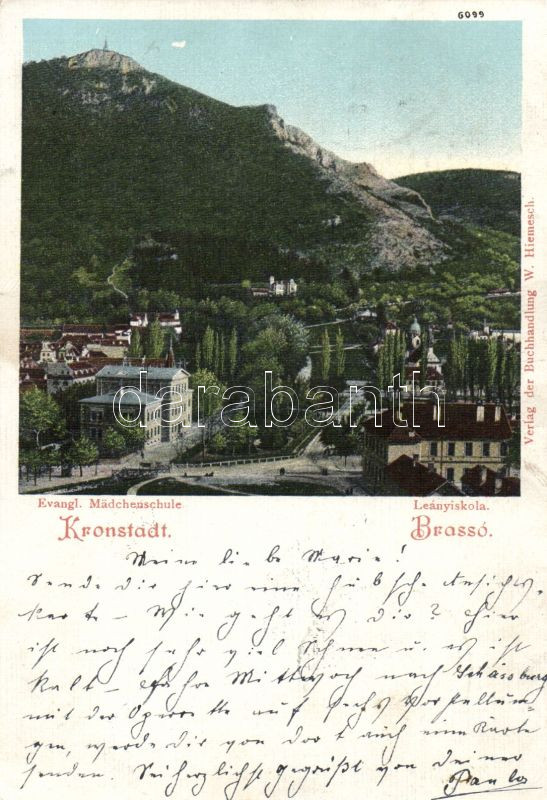 6099
Verlag der Buchhandlung W. Hiemesch.
darabanth
Evangl. Mädchenschule
Leányiskola.
Kronstadt.
Brassó.
Meine liebe Marie!
Sende dir hier eine hübsche Ansichts-
karte – Wie geht es dir? Hier
ist noch sehr viel Schnee u. es ist
kalt – fahre Mittwoch nach Schässburg
mit der Operette auf sechs Vorstellun=
gen, werde dir von dort auch eine Karte
senden. Sei herzlichst gegrüßt von deiner